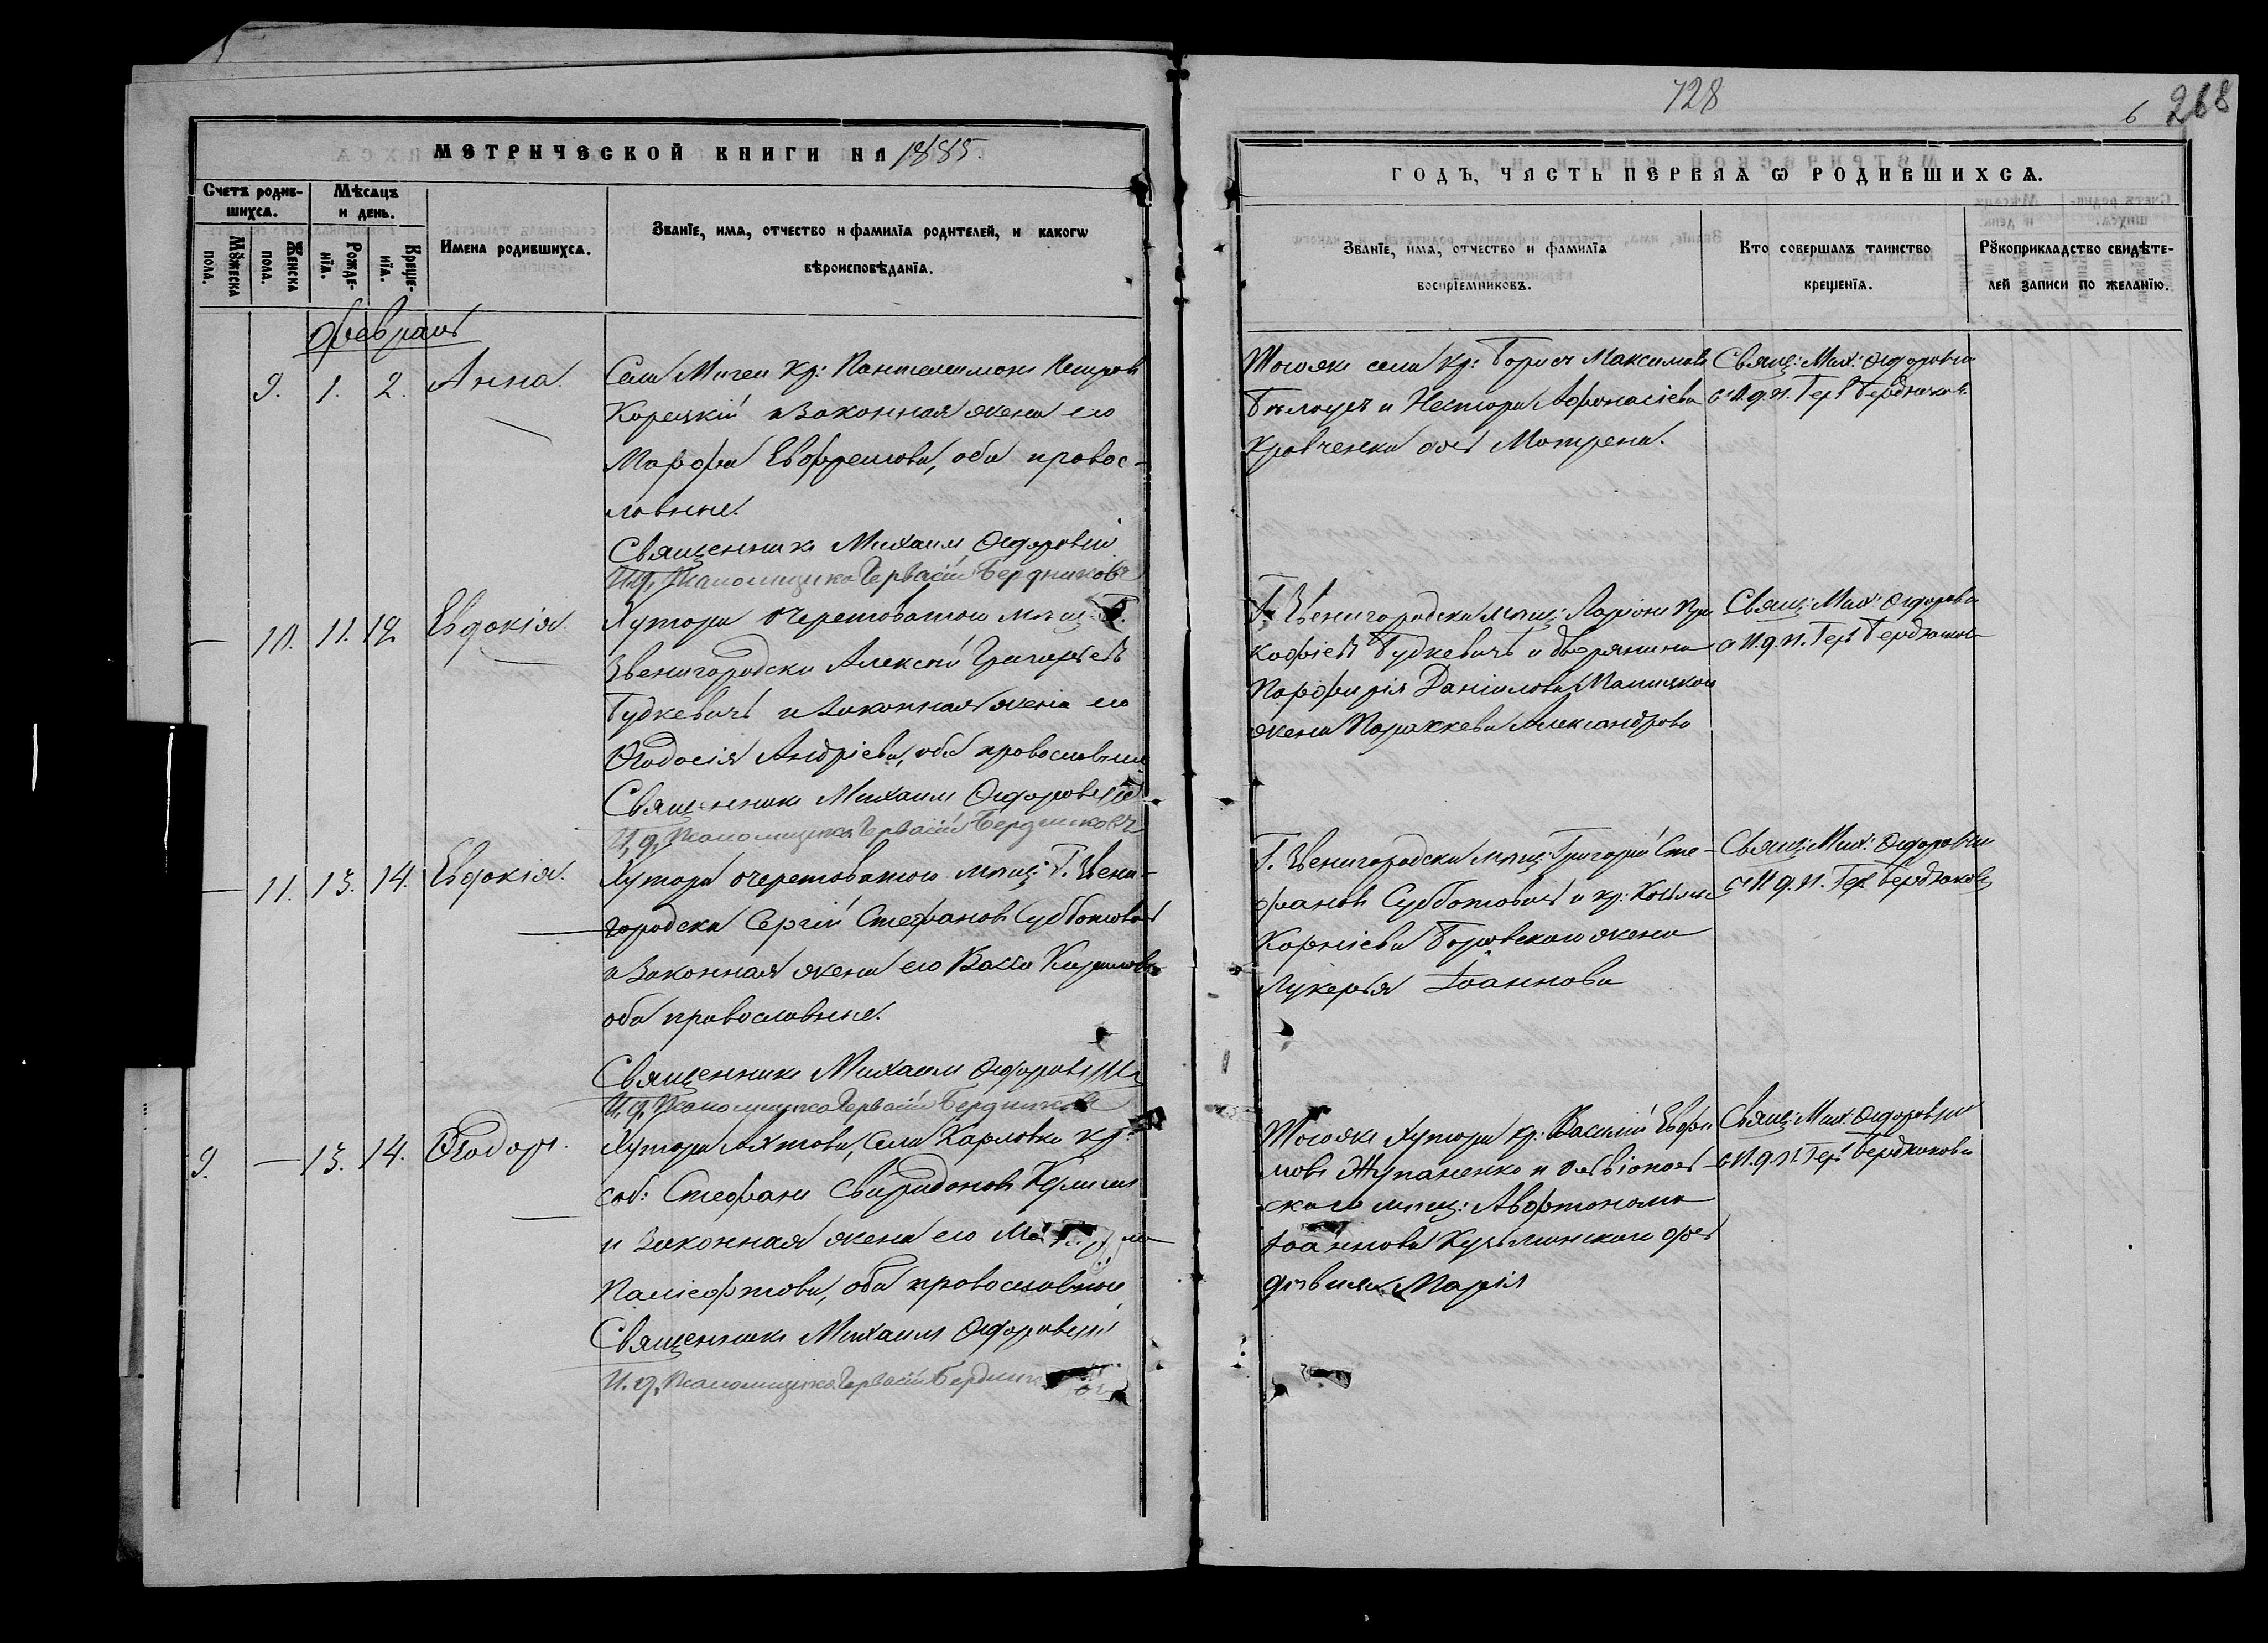 728
6 268
МЕТРИЧЕСКОЙ КНИГИ НА 1885.
ГОДЪ, ЧАСТЬ ПЕРВАЯ Ѡ РОДИВШИХСѦ.
Счетъ родив-
шихсѧ.
Мѣсѧцъ
и день.
Мꙋжеска
пола.
Женска
пола.
Рожде-
нїѧ.
Креще-
нїѧ.
Имена родившихсѧ.
Званїе, имѧ, отчество и фамилїѧ родителей, и какогѡ
вѣроисповѣданїѧ.
Званїе, имѧ, отчество и фамилїѧ
воспрїемниковъ.
Кто совершалъ таинство
крещенїѧ.
Рꙋкоприкладство свидѣте-
лей записи по желанїю.
Февраль
9. 1. 2. Анна.
Села Мигеи кр: Пантелеимонъ Петровъ
Корецкій и Законная жена его
Марфа Евфремова, оба правос-
лавные.
Священникъ Михаилъ Ѳедоровскій
И.д. Псаломщика Гервасій Бердниковъ
Тогоже села кр: Борисъ Максимовъ
Бѣлоусъ и Нестора Афонасіева
Кравченка дочь Матрена.
Свящ: Мих: Ѳедоровскій
съ И.д.П. Герв: Бердниковъ
— 10. 11. 12. Евдокія.
Хутора Очеретоватаго мѣщ: Г.
Звенигородска Алексѣй Григорьевъ
Будкевичъ и Законная жена его
Ѳеодосія Андріева, оба православные
Священникъ Михаилъ Ѳедоровскій
И.д. Псаломщика Гервасій Бердниковъ
Г. Звенигородска мѣщ: Ларіонъ Про
кофіевъ Будкевичъ и дворянина
Порфирія Даніилова
жена Параскева Александрова
Свящ: Мих: Ѳедоровскій
съ И.д.П. Герв: Бердниковъ
— 11. 13. 14. Евдокія.
Хутора Очеретоватаго мѣщ: Г. Звени-
городска Сергій Стефановъ Субботовичъ
и Законная жена его Васса Кирилова
оба православные.
Священникъ Михаилъ Ѳедоровскій
И.д. Псаломщика Гервасій Бердниковъ
Г. Звенигородска мѣщ: Григорій Сте-
фановъ Субботовичъ и кр: Космы
Корніева Боровскаго жена
Лукерья Іоаннова
Свящ: Мих: Ѳедоровскій
съ И.д.П. Герв: Бердниковъ
9. — 13. 14. Ѳеодоръ.
Хутора Ляхтова, Села Карловки кр:
соб: Стефанъ Свиридоновъ
и Законная жена его
оба православные
Священникъ Михаилъ Ѳедоровскій
И.д. Псаломщика Гервасій Бердниковъ
Тогоже Хутора кр: Василій Евфи
мовъ Жупаненко и Ольвіополь-
скаго мѣщ: Авфтонома
Іоаннова Кузьминскаго дочь
дѣвица Марія
Свящ: Мих: Ѳедоровскій
съ И.д.П. Герв: Бердниковъ